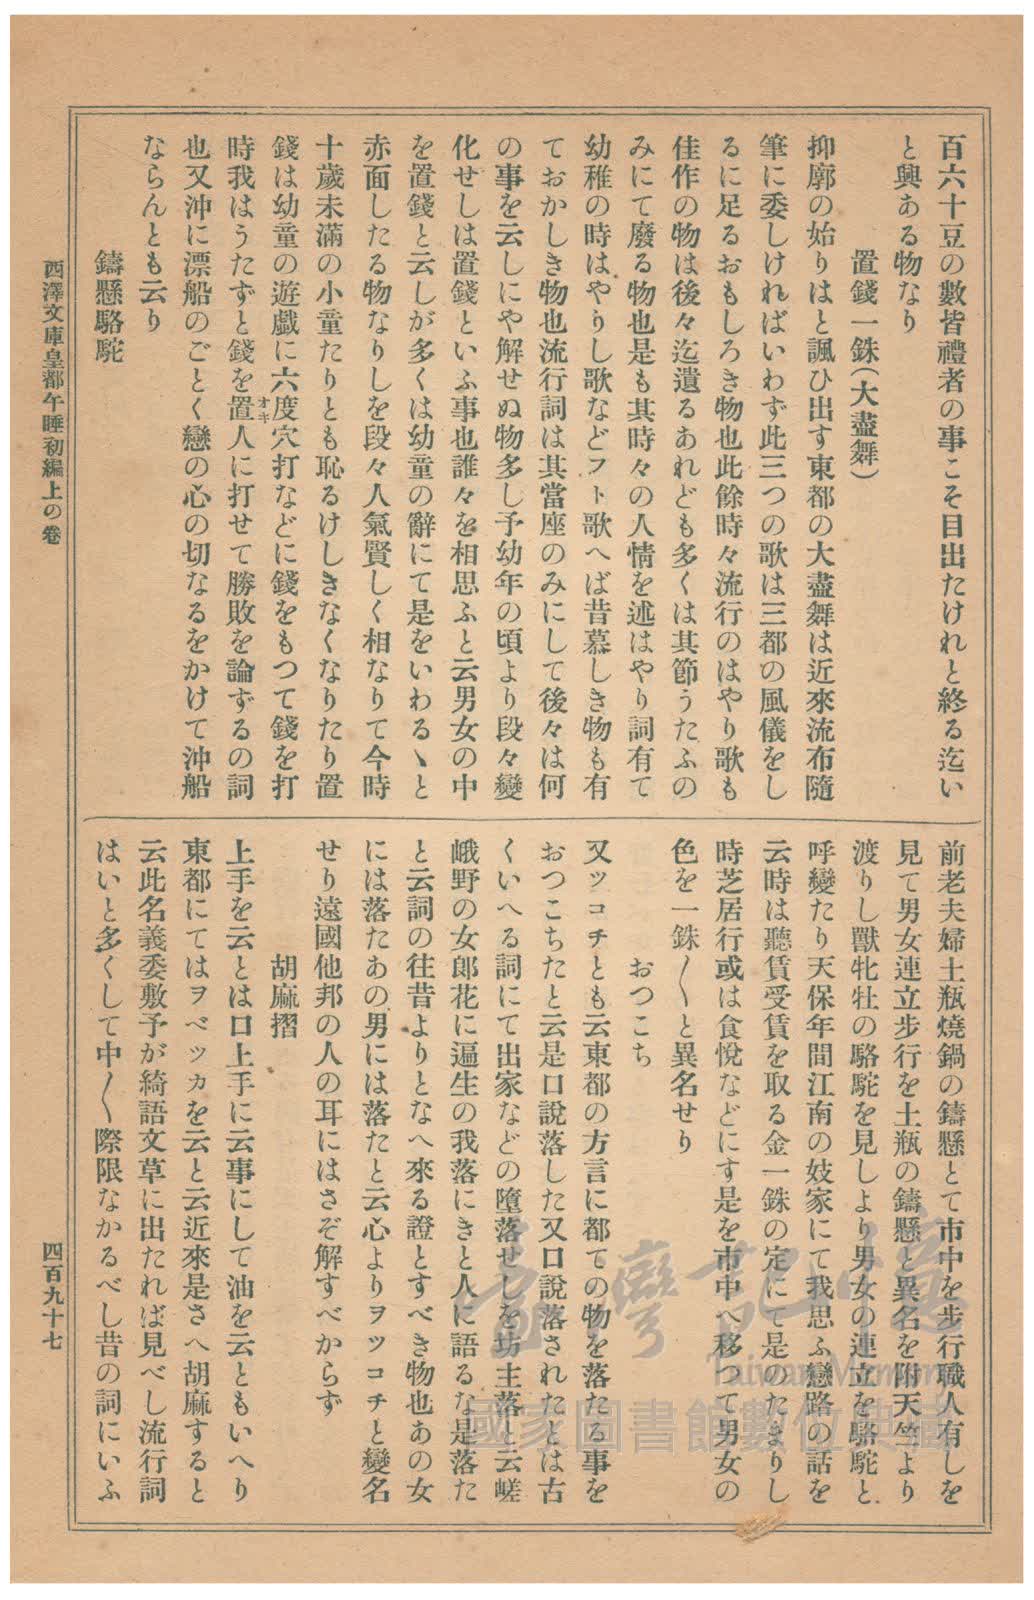 百六十豆の數皆禮者の事こそ目出たけれと終る迄い
と興ある物なり
置錢一銖(大盡舞)
抑廓の始りはと諷ひ出す東都の大盡舞は近來流布隨
筆に委しければいわず此三つの歌は三都の風儀をし
るに足るおもしろき物也此餘時々流行のはやり歌も
佳作の物は後々迄遺るあれども多くは其節うたふの
みにて廢る物也是も其時々の人情を述はやり詞有て
幼稚の時はやりし歌などフト歌へば昔慕しき物も有
ておかしき物也流行詞は其當座のみにして後々は何
の事を云しにや解せぬ物多し予幼年の頃より段々變
化せしは置錢といふ事也誰々を相思ふと云男女の中
を置錢と云しが多くは幼童の辭にて是をいわるゝと
赤面したる物なりしを段々人氣賢しく相なりて今時
十歲未滿の小童たりとも恥るけしきなくなりたり置
錢は幼童の遊戲に六度穴打などに錢をもつて錢を打
時我はうたずと錢を置人に打せて勝敗を論ずるの詞
オキ
也又沖に漂船のごとく戀の心の切なるをかけて沖船
ならんとも云り
鑄懸駱駝
前老夫婦土瓶燒鍋の鑄懸とて市中を步行職人有しを
見て男女連立步行を土瓶の鑄懸と異名を附天竺より
渡りし獸牝牡の駱駝を見しより男女の連立を駱駝と
呼變たり天保年間江南の妓家にて我思ふ戀路の話を
云時は聽賃受賃を取る金一銖の定にて是のたまりし
時芝居行或は食悅などにす是を市中へ移つて男女の
色を一銖〳〵と異名せり
おつこち
又ツコチとも云東都の方言に都ての物を落たる事を
おつこちたと云是口說落した又口說落されたとは古
くいへる詞にて出家などの墮落せしを坊主落と云嵯
峨野の女郎花に遍生の我落にきと人に語るな是落た
と云詞の往昔よりとなへ來る證とすべき物也あの女
には落たあの男には落たと云心よりヲツコチと變名
せり遠國他邦の人の耳にはさぞ解すべからず
胡麻摺
上手を云とは口上手に云事にして油を云ともいへり
東都にてはヲベッカを云と云近來是さへ胡麻すると
云此名義委敷予が綺語文草に出たれば見べし流行詞
はいと多くして中〳〵際限なかるべし昔の詞にいふ
西澤文庫皇都午睡初編上の卷
四百九十七
臺灣記憶
Taiwan Memory
國家圖書館數位典藏